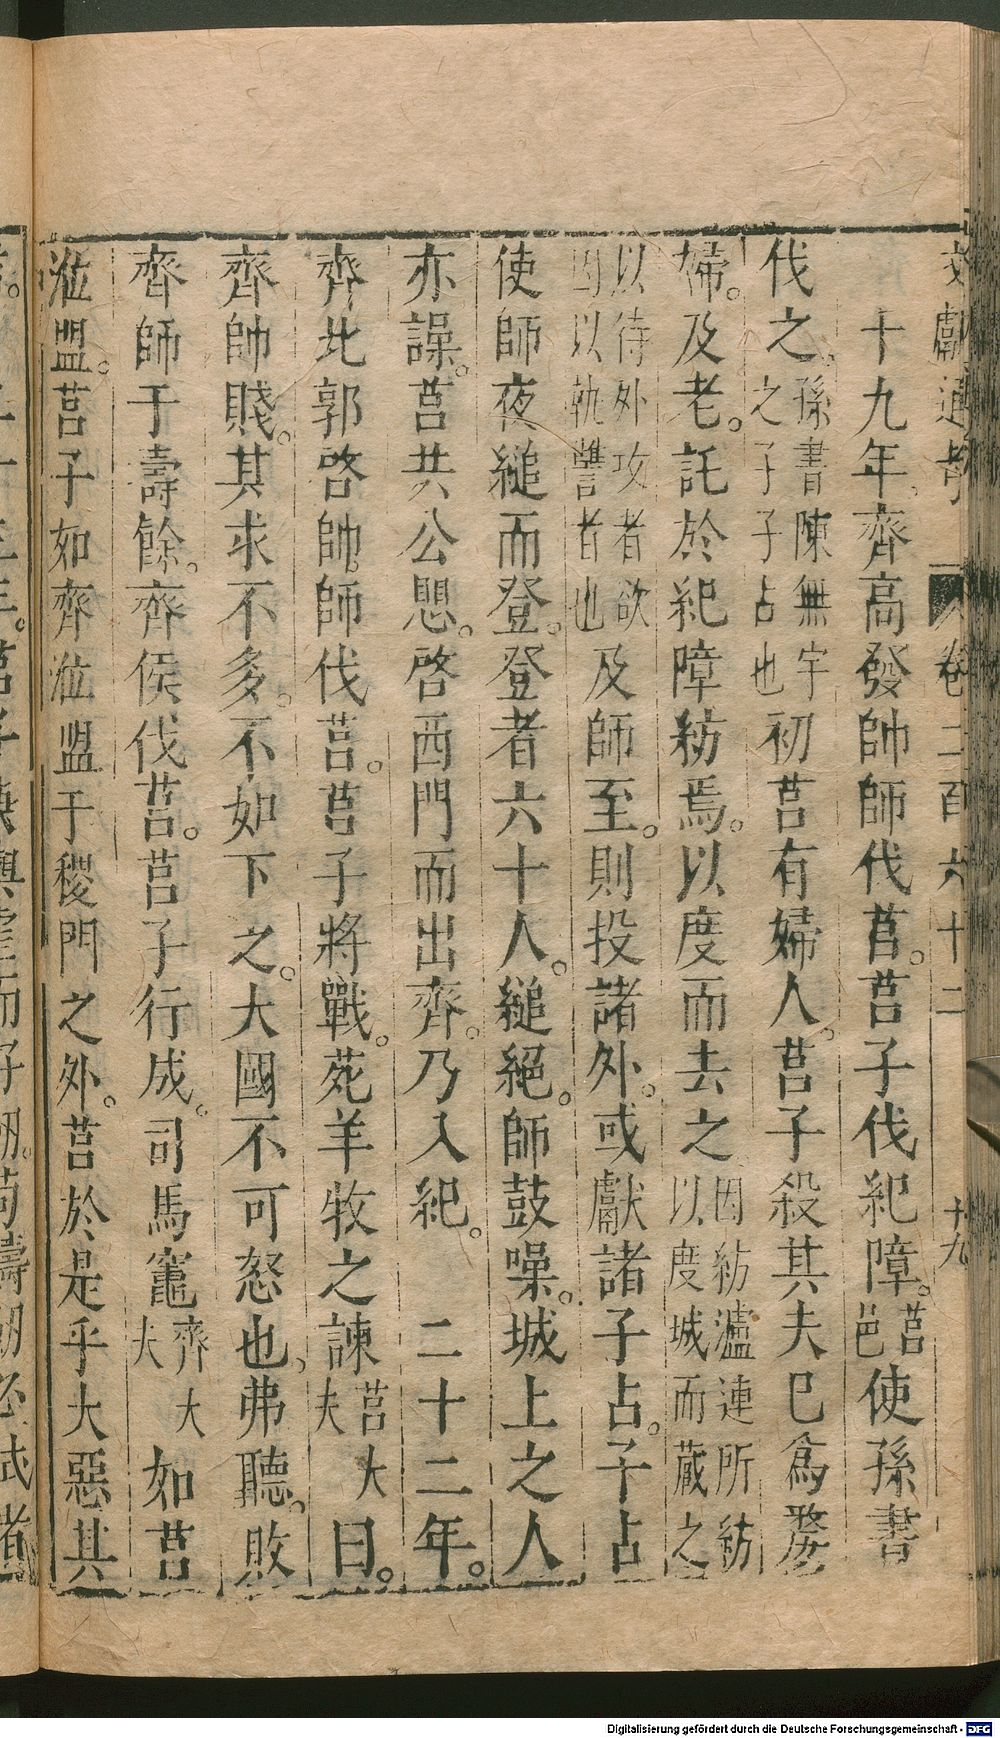 文獻通考 卷二百六十二 十九
十九年。齊高發帥師伐莒。莒子伐紀障。莒邑使孫書
伐之。孫書陳無宇之子子占也初莒有婦人。莒子殺其夫已爲嫠
婦。及老。託於紀障紡焉。以度而去之因紡瀘連所紡以度城而藏之
以待外攻者欲因以執讐者也及師至。則投諸外。或獻諸子占。子占
使師夜縋而登。登者六十人。縋絕。師鼓噪。城上之人
亦譟。莒共公懼。啓西門而出齊。乃入紀。 二十二年。
齊北郭啓帥師伐莒。莒子將戰。苑羊牧之諫莒大夫曰。
齊帥賤。其求不多。不如下之。大國不可怒也。弗聽。敗
齊師于壽餘。齊侯伐莒。莒子行成。司馬竈齊大夫如莒
涖盟。莒子如齊涖盟盟于稷門之外。莒於是乎大惡其
Digitalisierung gefördert durch die Deutsche Forschungsgemeinschaft - DFG